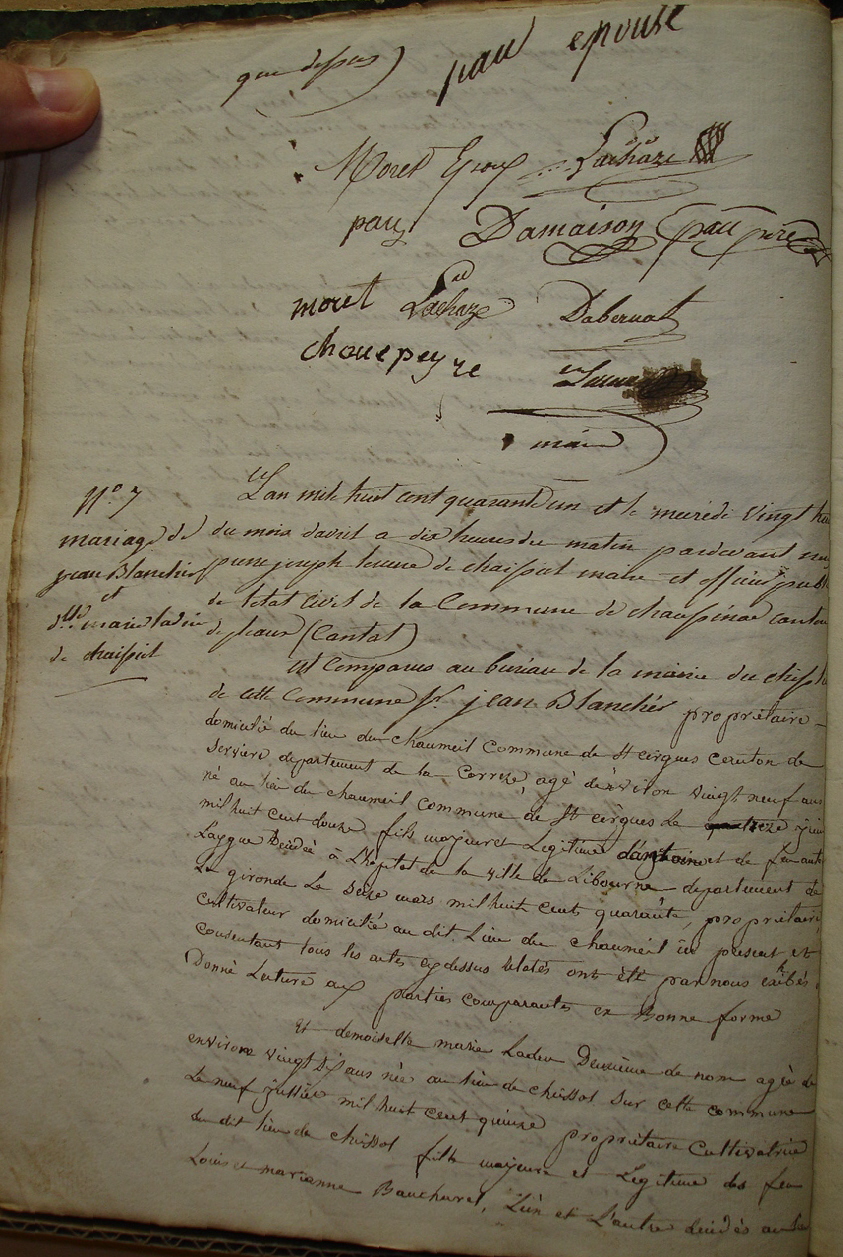 que dessus) pau epouse
Moret Lachaze
pau Damaison pau pere
moret Lachaze Dabernat
chouepeyre
maire
N.° 7
mariage de
jean Blanchés
et
d.lle marie ladeu
de chaissiol
L'an mil huit cent quarante un et le mercredi vingt huit
du mois d'avril a dix heures du matin pardevant nous
joseph de maire et officier public
de l'etat civil de la Commune de canton
(Cantal)
est Comparus au bureau de la mairie du
de cette Commune S.r jean Blanchés propriétaire
domicilié du lieu du chaumeil commune de St cirgues canton de
Serviere departement de la Correze, agé d'environ vingt neuf ans
né au lieu du chaumeil commune de St cirgues le treze juin
mil huit cent douze fils majeur et Legitime d'antoine et de feu
Laygue Décédée à L'hopital de la ville de Libourne departement de
La gironde Le Seize mars mil huit cent quarante, propriétaire
cultivateur domicilié au dit Lieu du chaumeil ici present et
consentant tous les actes cydessus relatés ont été par nous exibés
Donné Lecture aux parties comparantes en Bonne forme
Et demoiselle marie Ladeu Deuxième de nom agée de
environ vingt six ans née au lieu de chissol sur cette commune
Le neuf mil huit cent quinze propriétaire Cultivatrice
du dit lieu de chissol fille majeure et Legitime de feu
Louis et marianne Baucharel, L'un et L'autre décédés au